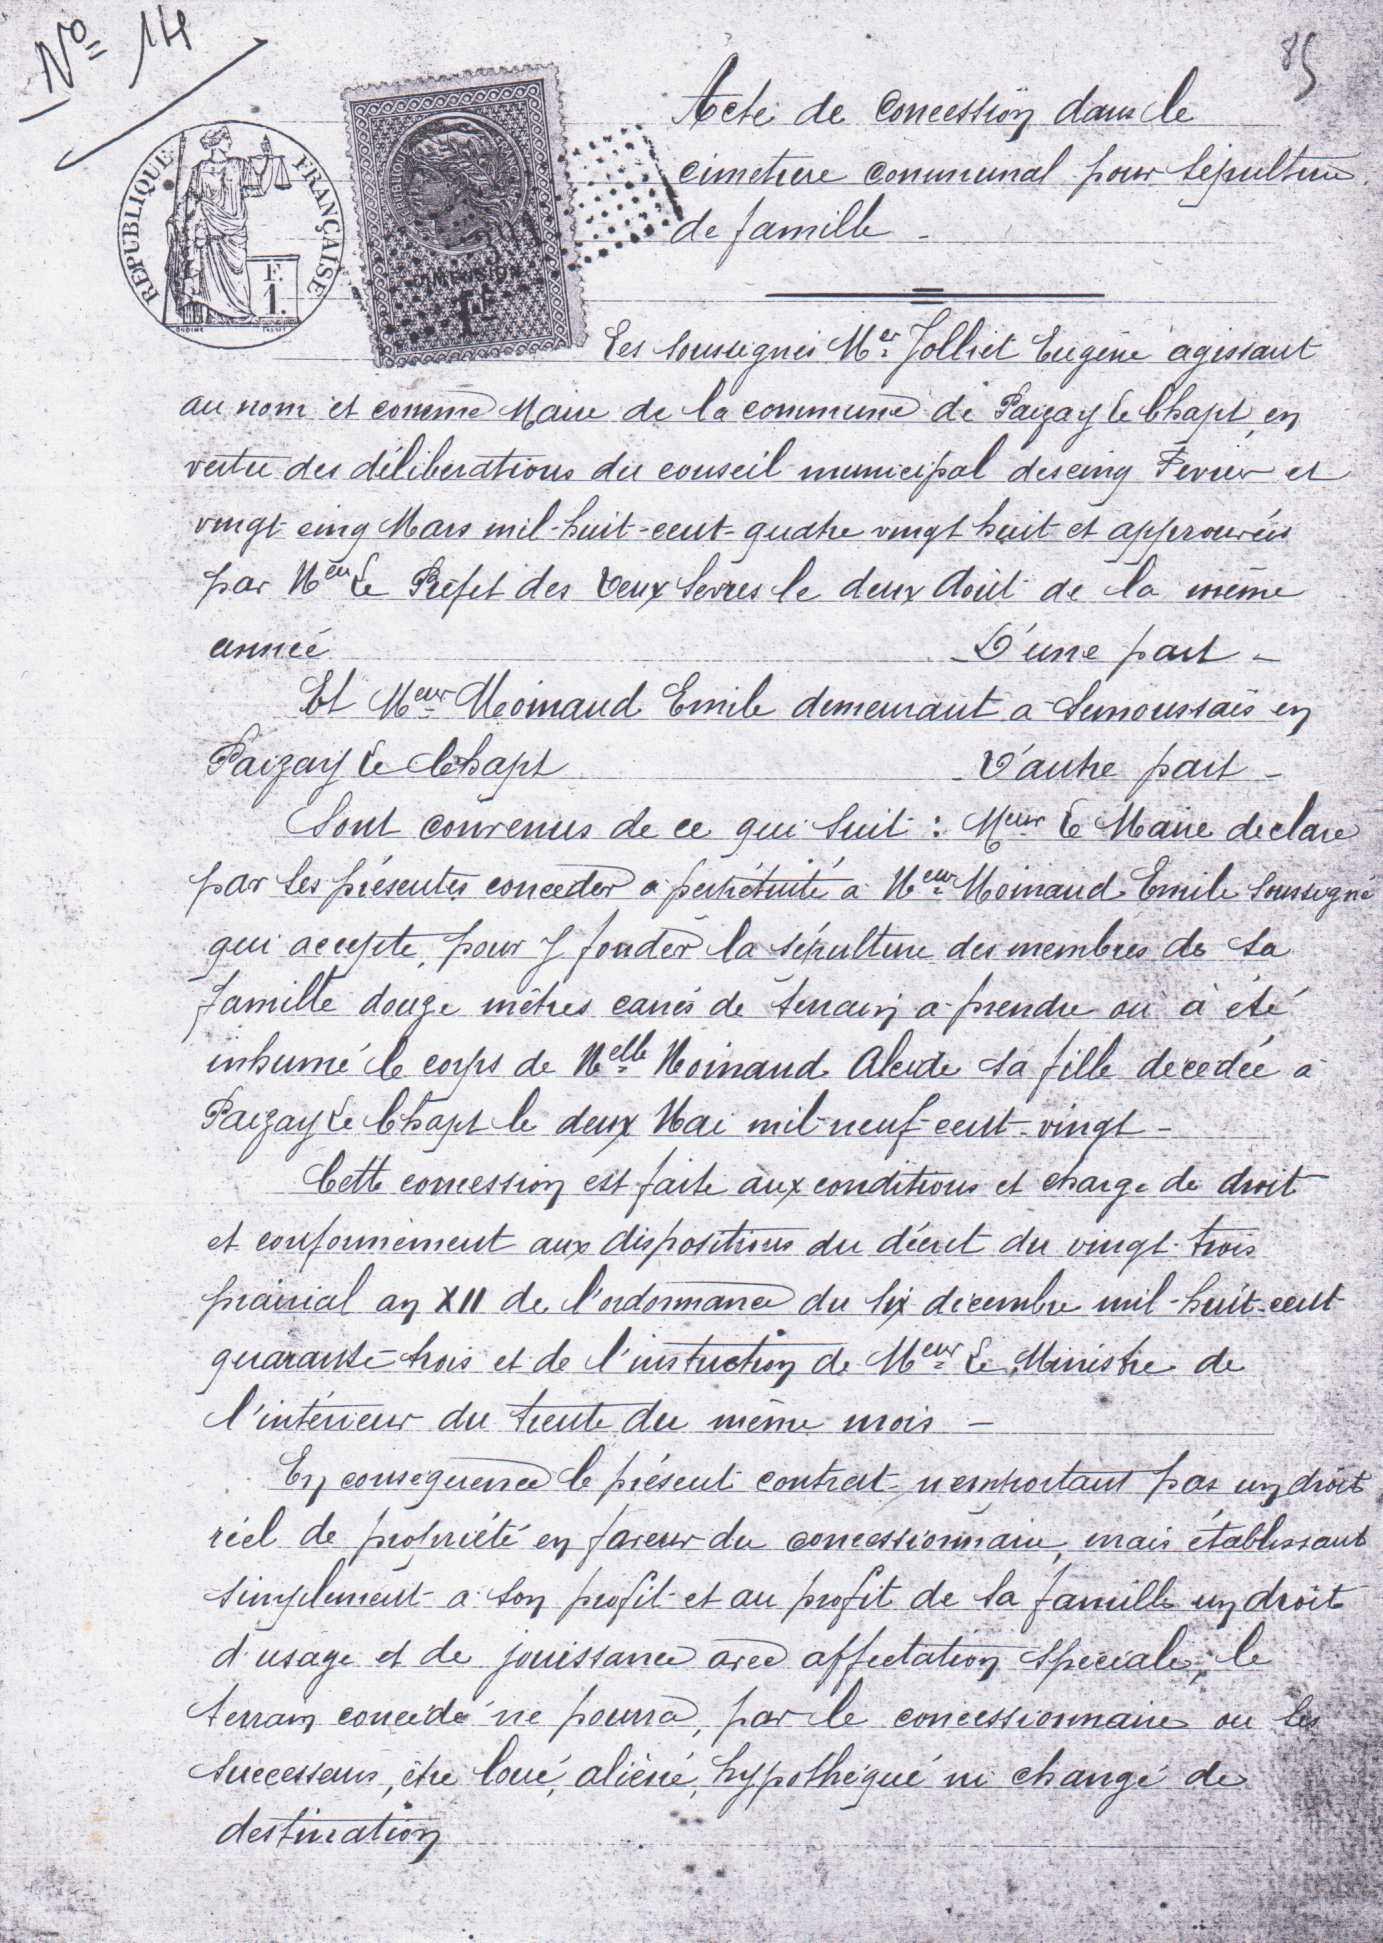 Nº 14
85
RÉPUBLIQUE FRANÇAISE
F.
1.
Acte de concession dans le
cimetiere communal pour sépulture
de famille -
Les soussignés Mr Jolliet Eugène agissant
au nom et comme Maire de la commune de Paizay le Chapt, en
vertu des déliberations du conseil municipal des cinq Fevrier et
vingt cinq Mars mil-huit-cent-quatre vingt huit et approuvées
par Meur Le Préfet des Deux Sevres le deux Août de la même
année D'une part -
Et Meur Moinaud Emile demeurant a Semoussais en
Paizay le Chapt D'autre part -
Sont convenus de ce qui suit : Meur Le Maire declare
par les présentes conceder a perpétuité a Meur Moinaud Emile soussigné
qui accepte, pour y fonder la sépulture des membres de sa
famille douze mètres carrés de terrain a prendre ou à été
inhumé le corps de Melle Moinaud Alcide sa fille decedée a
Paizay le Chapt le deux Mai mil-neuf-cent-vingt -
Cette concession est faite aux conditions et charge de droit
et conformement aux dispositions du décret du vingt-trois
prairial an XII de l'ordonnance du six decembre mil-huit-cent
quarante-trois et de l'instruction de Meur Le Ministre de
l'intérieur du trente du même mois -
En consequence le présent contrat n'emportant pas un droit
réel de propriété en faveur du concessionnaire, mais établissant
simplement a son profit et au profit de sa famille un droit
d'usage et de jouissance avec affectation spéciale, le
terrain concédé ne pourra, par le concessionnaire ou ses
successeurs, être loué, aliéné, hypothéqué ni changé de
destination